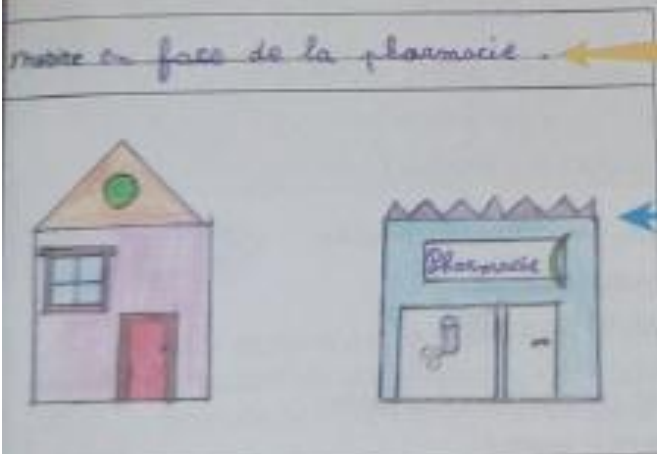 J'habite en face de la pharmacie.
Pharmacie